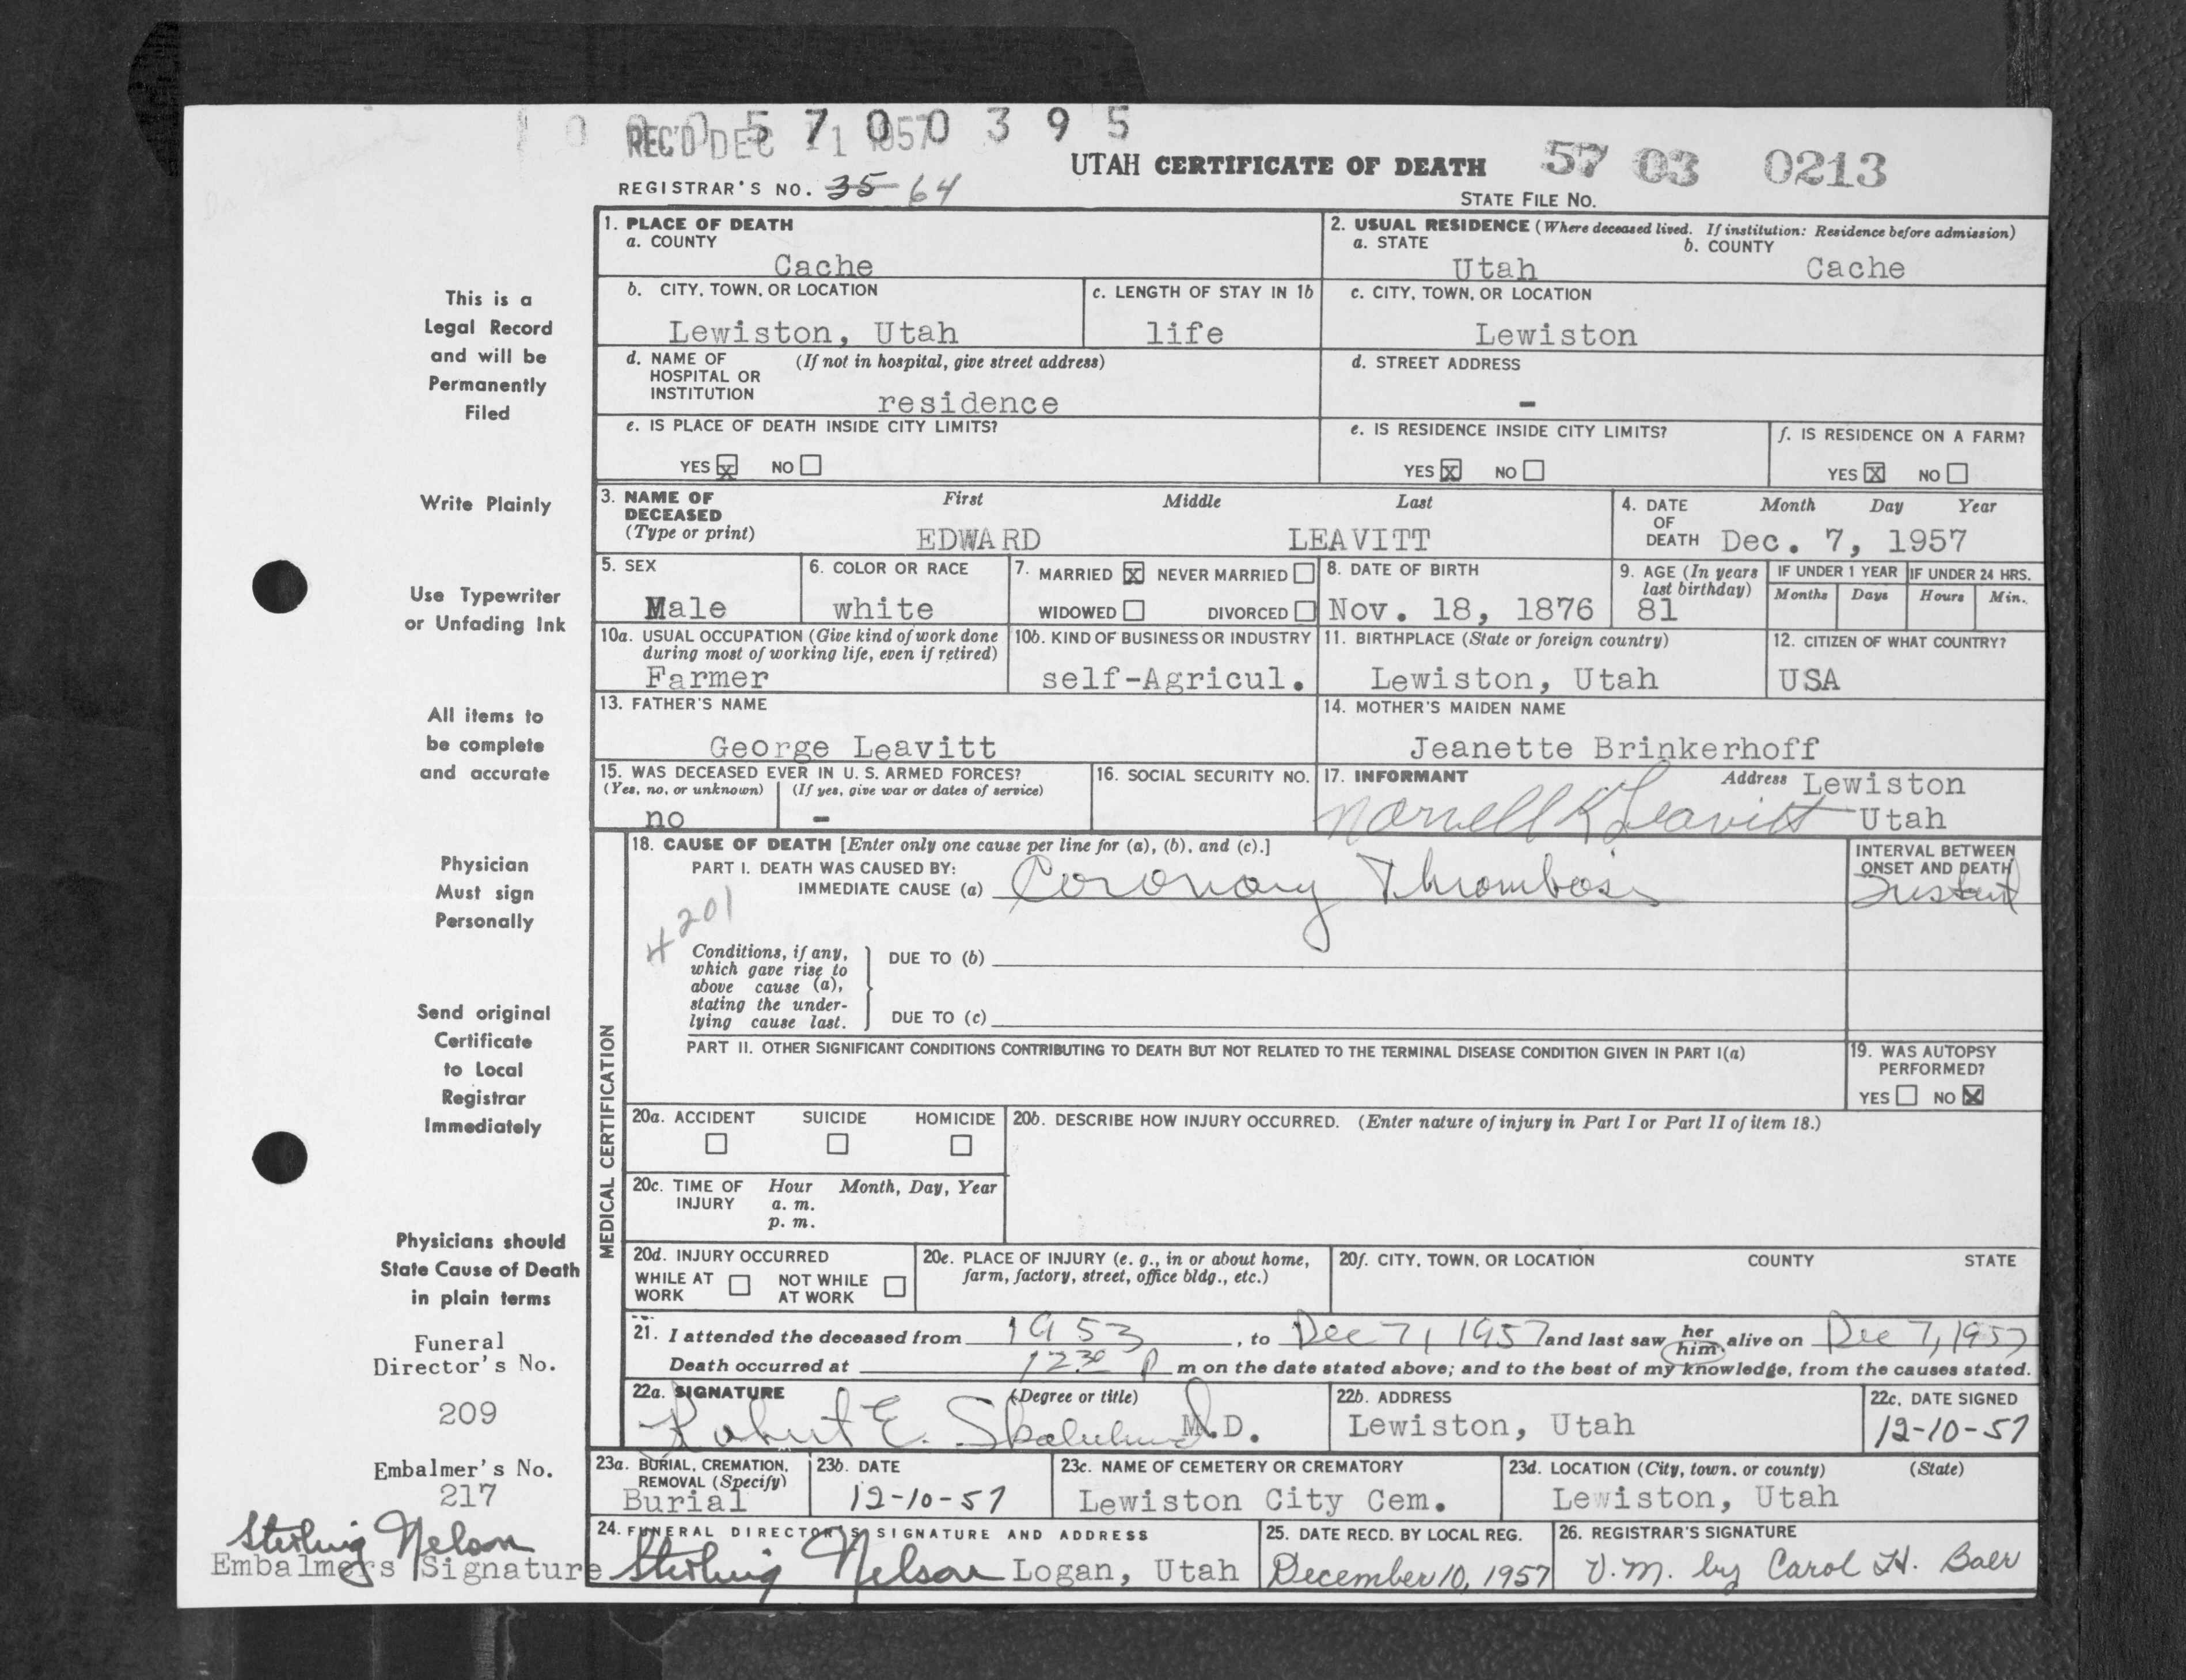 5 7 0 0 3 9 5
REC'D DEC 11 1957
UTAH CERTIFICATE OF DEATH 57 03 0213
REGISTRAR'S NO. 35 64
STATE FILE NO.
1. PLACE OF DEATH
a. COUNTY
Cache
2. USUAL RESIDENCE (Where deceased lived. If institution: Residence before admission)
a. STATE b. COUNTY
Utah Cache
b. CITY, TOWN, OR LOCATION
Lewiston, Utah
c. LENGTH OF STAY IN 1b
life
c. CITY, TOWN, OR LOCATION
Lewiston
d. NAME OF (If not in hospital, give street address)
HOSPITAL OR
INSTITUTION
residence
d. STREET ADDRESS
-
e. IS PLACE OF DEATH INSIDE CITY LIMITS?
YES X NO
e. IS RESIDENCE INSIDE CITY LIMITS?
YES X NO
f. IS RESIDENCE ON A FARM?
YES X NO
3. NAME OF First Middle Last
DECEASED
(Type or print)
EDWARD LEAVITT
4. DATE Month Day Year
OF
DEATH Dec. 7, 1957
5. SEX
Male
6. COLOR OR RACE
white
7. MARRIED X NEVER MARRIED
WIDOWED DIVORCED
8. DATE OF BIRTH
Nov. 18, 1876
9. AGE (In years
last birthday)
81
IF UNDER 1 YEAR
Months Days
IF UNDER 24 HRS.
Hours Min.
10a. USUAL OCCUPATION (Give kind of work done
during most of working life, even if retired)
Farmer
10b. KIND OF BUSINESS OR INDUSTRY
self-Agricul.
11. BIRTHPLACE (State or foreign country)
Lewiston, Utah
12. CITIZEN OF WHAT COUNTRY?
USA
13. FATHER'S NAME
George Leavitt
14. MOTHER'S MAIDEN NAME
Jeanette Brinkerhoff
15. WAS DECEASED EVER IN U. S. ARMED FORCES?
(Yes, no, or unknown) (If yes, give war or dates of service)
no -
16. SOCIAL SECURITY NO.
17. INFORMANT Address Lewiston
Norvell K Leavitt Utah
MEDICAL CERTIFICATION
18. CAUSE OF DEATH [Enter only one cause per line for (a), (b), and (c).]
PART I. DEATH WAS CAUSED BY:
IMMEDIATE CAUSE (a) Coronary Thrombosis
INTERVAL BETWEEN
ONSET AND DEATH
Instant
4201
Conditions, if any,
which gave rise to
above cause (a),
stating the under-
lying cause last.
DUE TO (b)
DUE TO (c)
PART II. OTHER SIGNIFICANT CONDITIONS CONTRIBUTING TO DEATH BUT NOT RELATED TO THE TERMINAL DISEASE CONDITION GIVEN IN PART I(a)
19. WAS AUTOPSY
PERFORMED?
YES NO X
20a. ACCIDENT SUICIDE HOMICIDE
20b. DESCRIBE HOW INJURY OCCURRED. (Enter nature of injury in Part I or Part II of item 18.)
20c. TIME OF Hour Month, Day, Year
INJURY a. m.
p. m.
20d. INJURY OCCURRED
WHILE AT NOT WHILE
WORK AT WORK
20e. PLACE OF INJURY (e. g., in or about home,
farm, factory, street, office bldg., etc.)
20f. CITY, TOWN, OR LOCATION COUNTY STATE
21. I attended the deceased from 1953, to Dec 7, 1957 and last saw her him alive on Dec 7, 1957
Death occurred at 12:30 P m on the date stated above; and to the best of my knowledge, from the causes stated.
22a. SIGNATURE (Degree or title)
Robert E. M.D.
22b. ADDRESS
Lewiston, Utah
22c. DATE SIGNED
12-10-57
23a. BURIAL, CREMATION,
REMOVAL (Specify)
Burial
23b. DATE
12-10-57
23c. NAME OF CEMETERY OR CREMATORY
Lewiston City Cem.
23d. LOCATION (City, town, or county) (State)
Lewiston, Utah
24. FUNERAL DIRECTOR'S SIGNATURE AND ADDRESS
Sterling Nelson Logan, Utah
25. DATE RECD. BY LOCAL REG.
December 10, 1957
26. REGISTRAR'S SIGNATURE
V.M. by Carol H. Baer
This is a
Legal Record
and will be
Permanently
Filed
Write Plainly
Use Typewriter
or Unfading Ink
All items to
be complete
and accurate
Physician
Must sign
Personally
Send original
Certificate
to Local
Registrar
Immediately
Physicians should
State Cause of Death
in plain terms
Funeral
Director's No.
209
Embalmer's No.
217
Sterling Nelson
Embalmers Signature